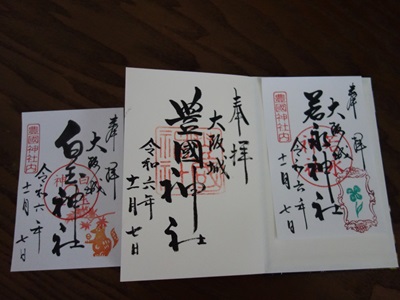 奉拜
大阪城
豊國神社内
白玉神社
令和六年
十一月七日
奉拝
大阪城
豊國神社
令和六年
十一月七日
奉拜
大阪城
豊國神社内
若永神社
令和六年
十一月七日